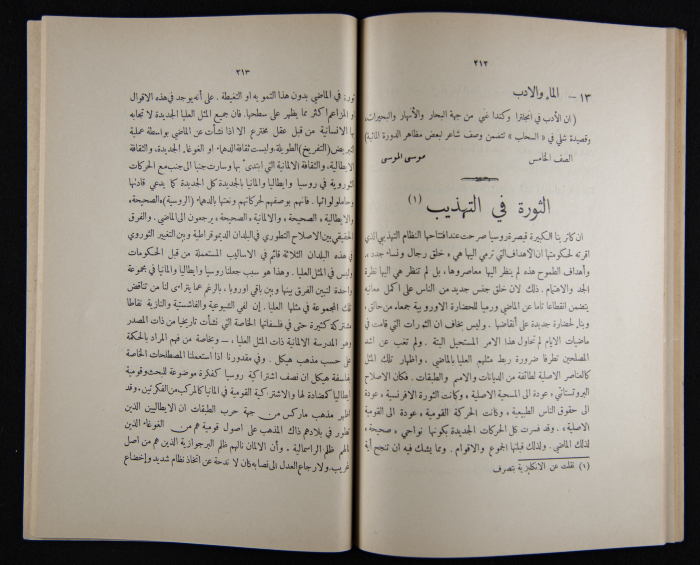 ٢١٢
١٣ – الماء والادب
( ان الأدب في انجلترا وكندا غني من جهة البحار والأنهار والبحيرات،
وقصيدة شلي في « السحاب » تتضمن وصف شاعر لبعض مظاهر الدورة المائية)
الصف الخامس موسى الموسى
الثورة في التهذيب (١)
ان كاترينا الكبيرة قيصرة روسيا صرحت عند افتتاحها النظام التهذيبي الذي
اقرته لحكومتها ان الاهداف التي ترمي اليها هي « خلق رجال ونساء جدد ».
وأهداف الطموح هذه لم ينظر اليها معاصروها، بل لم تنظر هي اليها نظرة
الجد والاهتمام . ذلك لان خلق جنس جديد من الناس على اكمل معانيه
يتضمن انقطاعا تاما عن الماضي ورميا للحضارة الاوروبية جمعاء من حالق،
وبناء لحضارة جديدة على أنقاضها . وليس بخاف ان الثورات التي قامت في
ماضيات الايام لم تحاول هذا الامر المستحيل البتة . ولم تغب عن اشد
المصلحين تطرفا ضرورة ربط مثلهم العليا بالماضي، واظهار تلك المثل
كالعناصر الاصلية لطائفة من الديانات والامم والطبقات . فكان الاصلاح
البروتستاني « عودة الى المسيحية الاصلية » وكانت الثورة الافرنسية « عودة
الى حقوق الناس الطبيعية » وكانت الحركة القومية « عودة الى القومية
الاصلية » . وقد فسرت كل الحركات الجديدة بكونها نواحي « صحيحة »
لذلك الماضي . ولذلك قبلتها الجموع والاقوام . ومما يشك فيه ان تنجح أية
(١) نقلت عن الانكليزية بتصرف
٢١٣
ثورة في الماضي بدون هذا التمويه او التغطية . على أنه يوجد في هذه الاقوال
او المزاعم اكثر مما يظهر على سطحها. فان جميع المثل العليا الجديدة لا تجابه
بها الانسانية من قبل عقل مخترع الا اذا نشأت عن الماضي بواسطة عملية
التبريض (التفريخ) الطويلة. وليست ثقافة الدهماء او الغوغاء الجديدة، والثقافة
الايطالية، والثقافة الالمانية التي ابتدىء بها وسارت جنبا الى جنب مع الحركات
الثوروية في روسيا وايطاليا والمانيا بالجديدة كل الجديدة كما يدعي قادتها
وحاملو لوائها . فانهم بوصفهم لحركاتهم ونعتها بالدهماء (الروسية) «الصحيحة»
والايطالية « الصحيحة » والالمانية « الصحيحة » يرجعون الى الماضي . والفرق
الحقيقي بين الاصلاح التطوري في البلدان الديموقراطية وبين التغيير الثوروي
في هذه البلدان الثلاثة قائم في الاساليب المستعملة من قبل الحكومات
وليس في المثل العليا . وهذا هو سبب جعلنا روسيا وايطاليا والمانيا في مجموعة
واحدة لنبين الفرق بينها وبين باقي اوروبا ، بالرغم عما يتراءى لنا من تناقض
تلك المجموعة في مثلها العليا . إن لفي الشيوعية والفاشستية والنازية نقاطا
مشتركة كثيرة حتى في فلسفاتها الخاصة التي نشأت تاريخيا من ذات المصدر
وهو المدرسة الالمانية ذات المثل العليا ، – وبخاصة من فهم المراد بالحكمة
على حسب مذهب هيكل . وفي مقدورنا اذا استعملنا المصطلحات الخاصة
بفلسفة هيكل ان نصف اشتراكية روسيا كفكرة موضوعة للبحث وقومية
ايطاليا كمضادة لها والاشتركية القومية في المانيا كالمركب من الفكرتين . وقد
اظهر مذهب ماركس من جهة حرب الطبقات ان الايطاليين الذين
تطور في بلادهم ذاك المذهب على اصول قومية هم من الغوغاء الذين
نالهم ظلم الرأسمالية . وأن الالمان نالهم ظلم البرجوازية الذين هم من اصل
غريب. ولارجاع العدل الى نصابه كان لا ندحة عن اتخاذ نظام شديد واخضاع